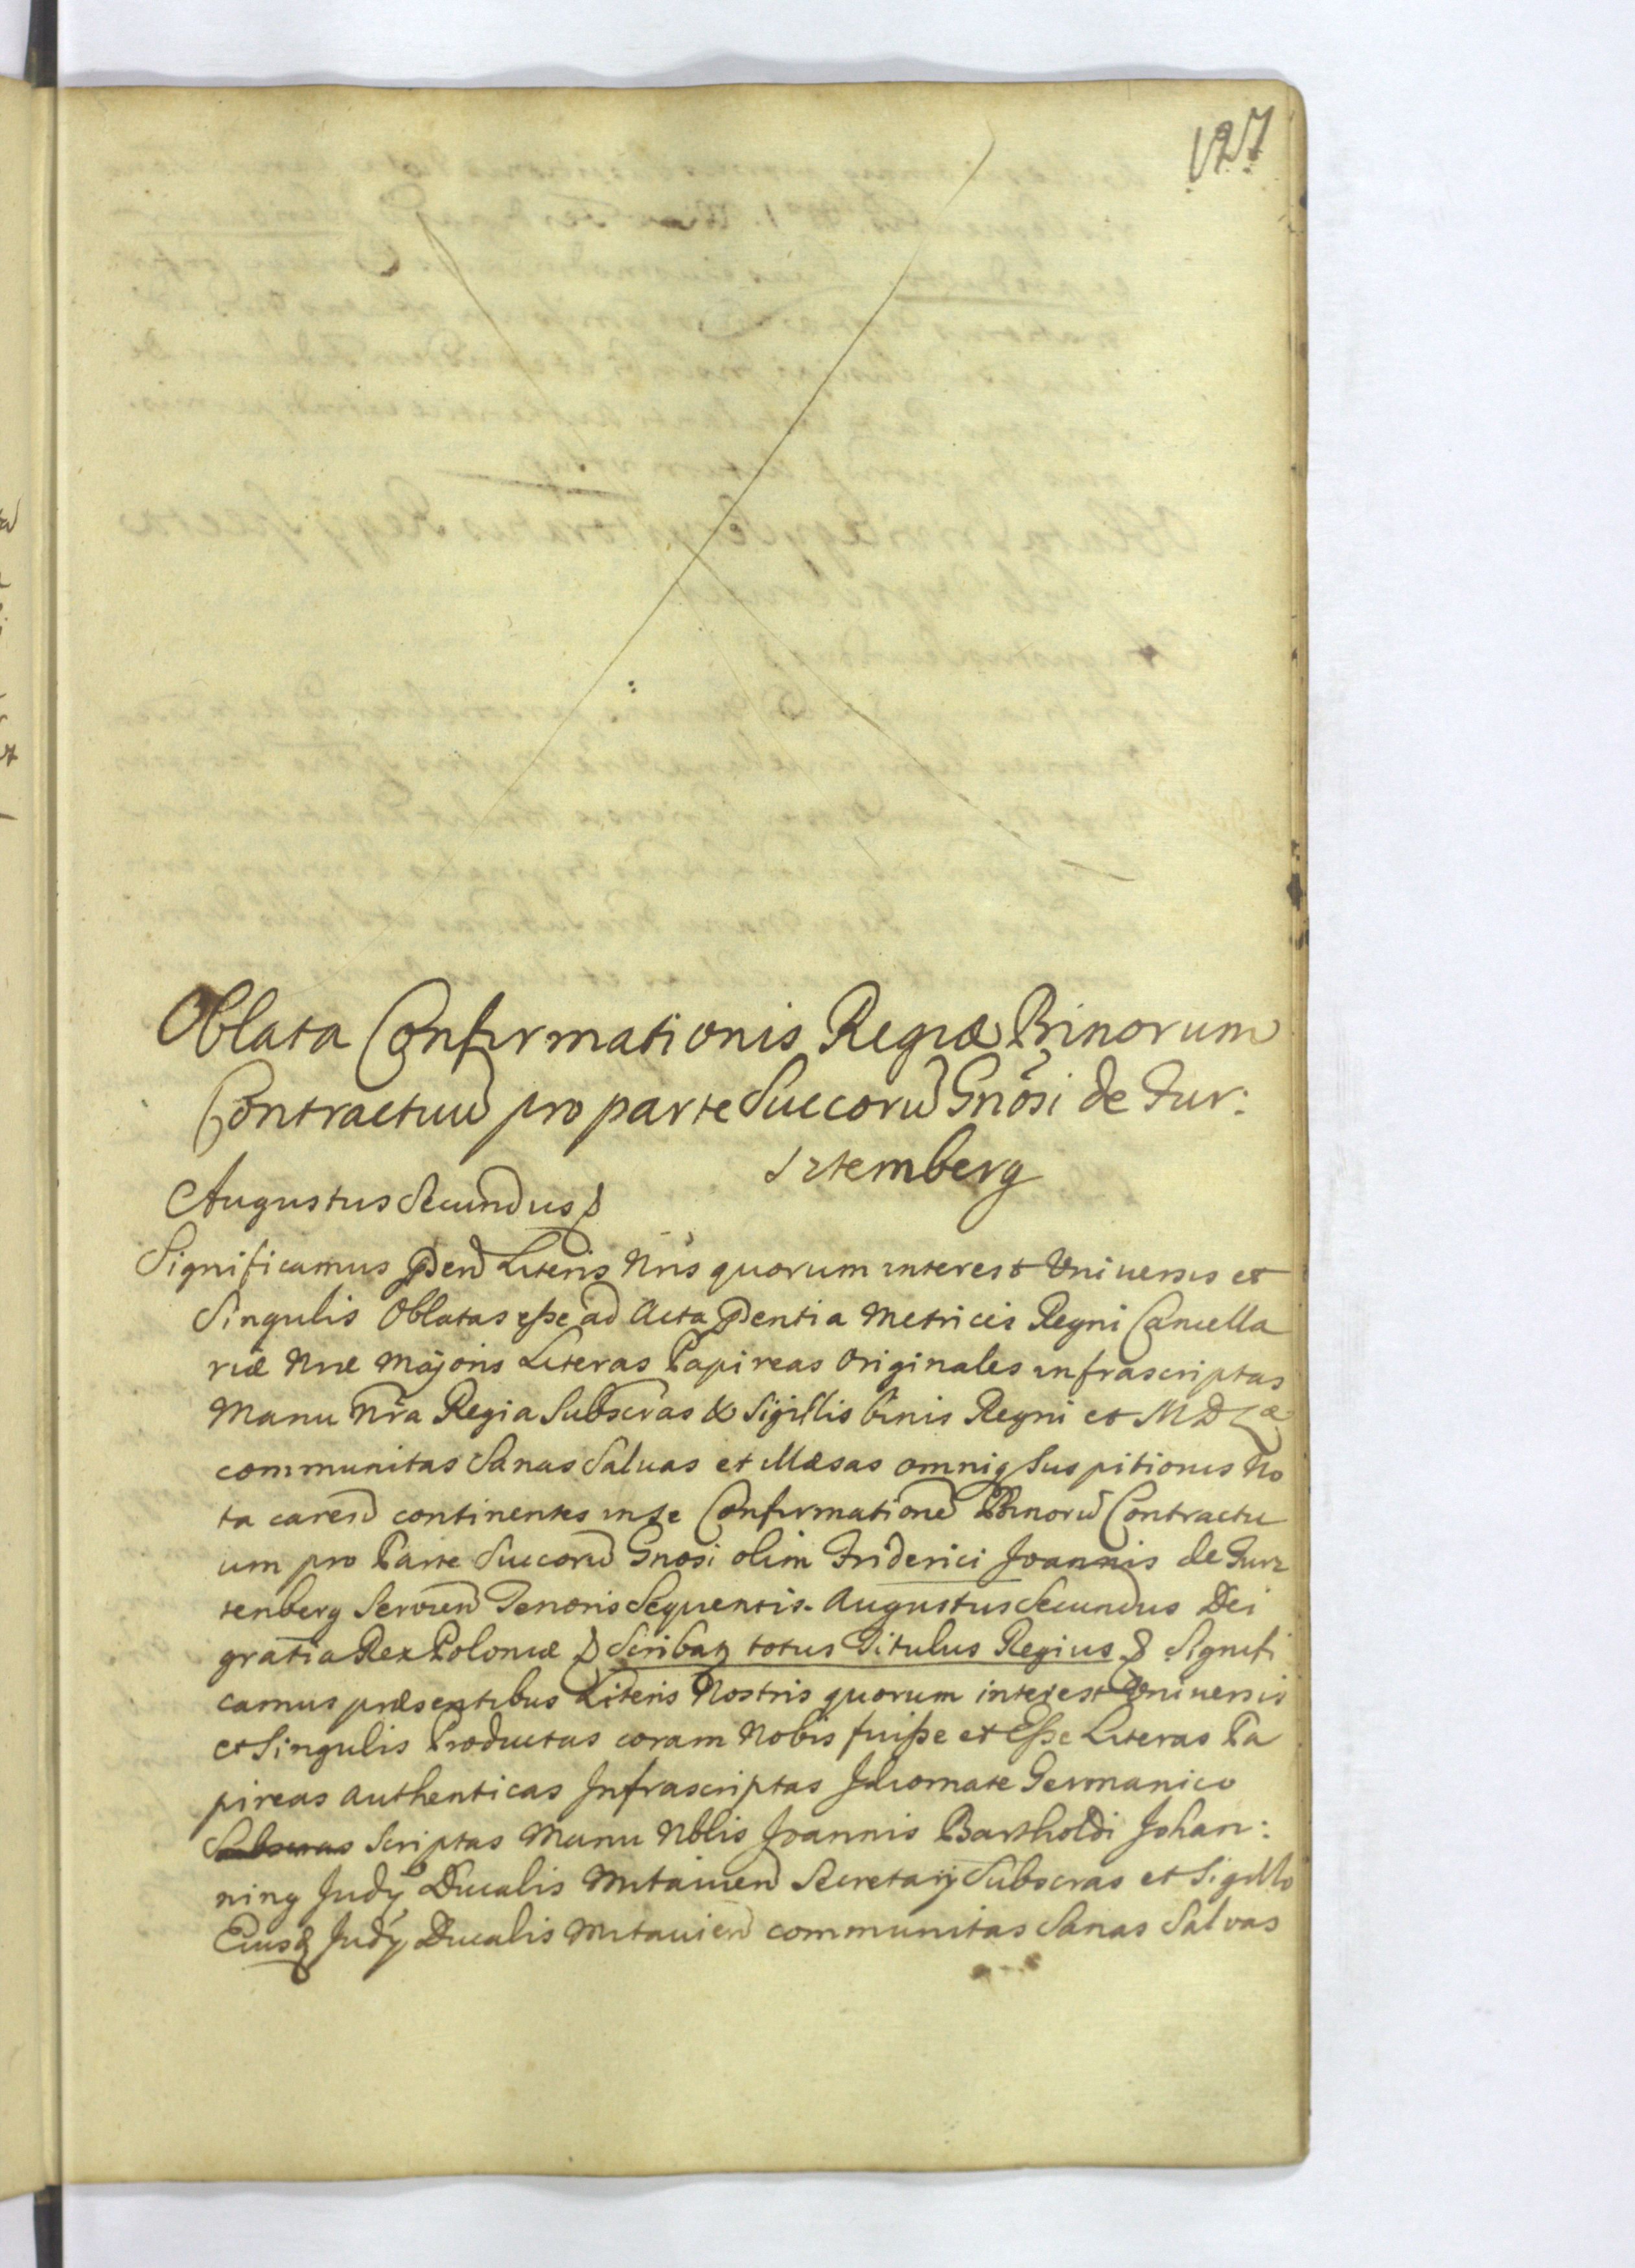 127
Oblata Confirmationis Regiæ Binorum
Contractuu pro parte Succoru Gnosi de Fur:
sztemberg
Augustus Secundus
Significamus pden Literis Nris quorum interest Universis et
Singulis Oblatas esse ad Acta pdentia Metrices Regni Cancella
riæ Nræ Majoris Literas Papireas Originales infrascriptas
Manu Nra Regia Subscras & Sigillis binis Regni et M D L æ
communitas Sanas Salvas et illæsas omniq Suspitionis No
ta caren continentes in se Confirmatione Binoru Contractu
um pro Parte Succoru Gnosi olim Friderici Joannis de Fursz
tenberg Servien Tenoris Sequentis. Augustus Secundus Dei
gratia Rex Poloniæ Scribatz totus Titulus Regius Signifi
camus præsentibus Literis Nostris quorum interest Universis
et Singulis Productas coram Nobis fuisse et Esse Literas Pa
pireas authenticas Infrascriptas Idiomate Germanico
Subscras Scriptas Manu Nblis Joannis Bartholdi Johan:
ning Judy Ducalis Mitavien Secretarij Subscras et Sigillo
Eiusd Judy Ducalis Mitavien communitas Sanas Salvas